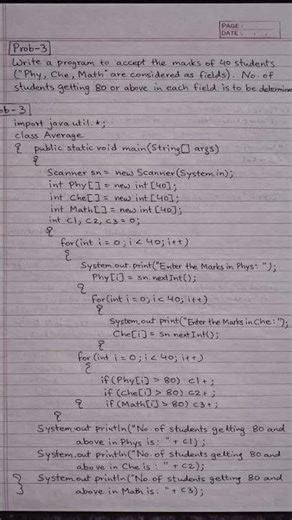 PAGE :
DATE :
Prob-3
Write a program to accept the marks of 40 students
("Phy, Che, Math" are considered as fields). No. of
students getting 80 or above in each field is to be determine
ob-3]
import java.util.*;
class Average
{ public static void main(String[] args)
{
Scanner sn = new Scanner(System.in);
int Phy[] = new int [40];
int Che[] = new int [40];
int Math[] = new int [40];
int C1, C2, C3 = 0;
{
for(int i = 0; i < 40; i++)
{
System.out.print("Enter the Marks in Phys: ");
Phy[i] = sn.nextInt();
{
for(int i = 0; i < 40; i++)
{
System.out.print("Enter the Marks in Che: ");
Che[i] = sn.nextInt();
{
for(int i = 0; i < 40; i++)
{
if(Phy[i] > 80) C1+;
if(Che[i] > 80) C2+;
{ if(Math[i] > 80) C3+;
{
System.out println("No. of students getting 80 and
above in Phys is: " + C1);
System.out println("No. of students getting 80 and
above in Che is: " + C2);
{ System.out println("No of students getting 80 and
} above in Math is: " + C3);